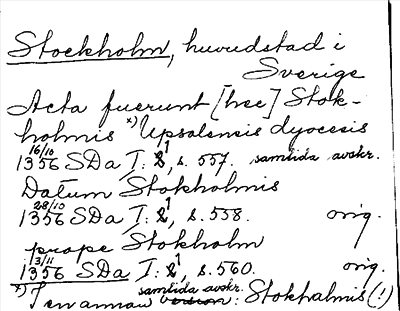 Stockholm, huvudstad i
Sverige
Acta fuerunt [hec] Stok-
holmis x) Upsalensis dyocesis
16/10
1356 SDa I: 1, s. 557. samtida avskr.
Datum Stokholmis
28/10
1356 SDa I: 1, s. 558. orig.
prope Stokholm
3/11
1356 SDa I: 1, s. 560. orig.
samtida avskr.
x) I en annan version: Stokhalmis (!)